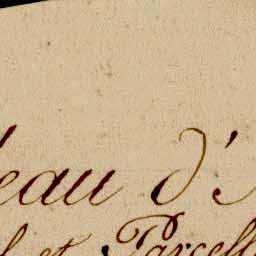 eau d'
et Parcell